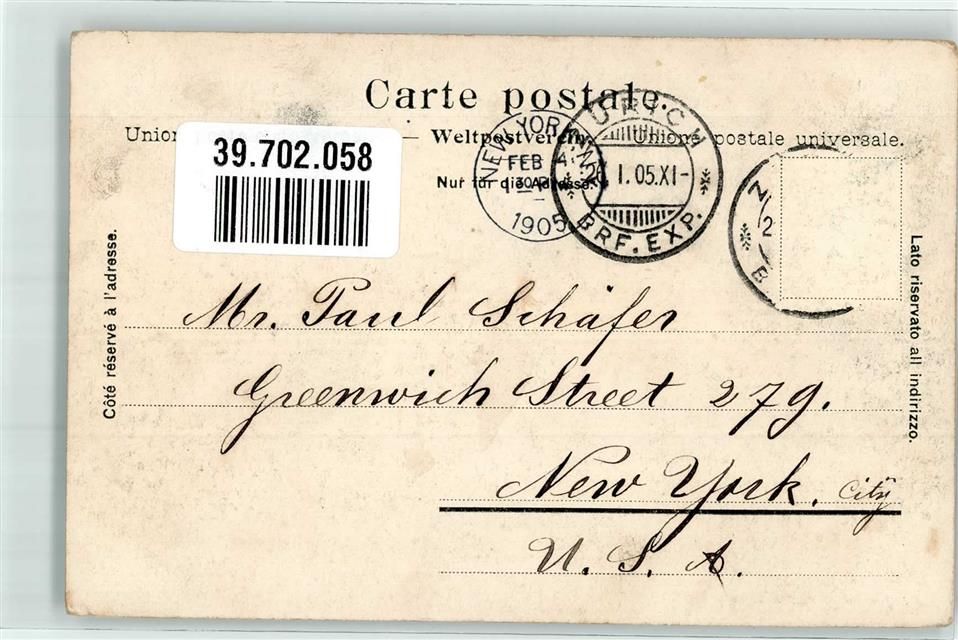 Carte postale.
Union — Weltpostverein. Unione postale universale.
39.702.058
Nur für die Adresse.
NEW YORK
FEB 4
1 30 P
1905
ZÜRICH
I. 05. XI-
BRF. EXP.
Z
2
B
Côté réservé à l'adresse.
Lato riservato all indirizzo.
Mr. Paul Schäfer
Greenwich Street 279.
New York. City
U. S. A.